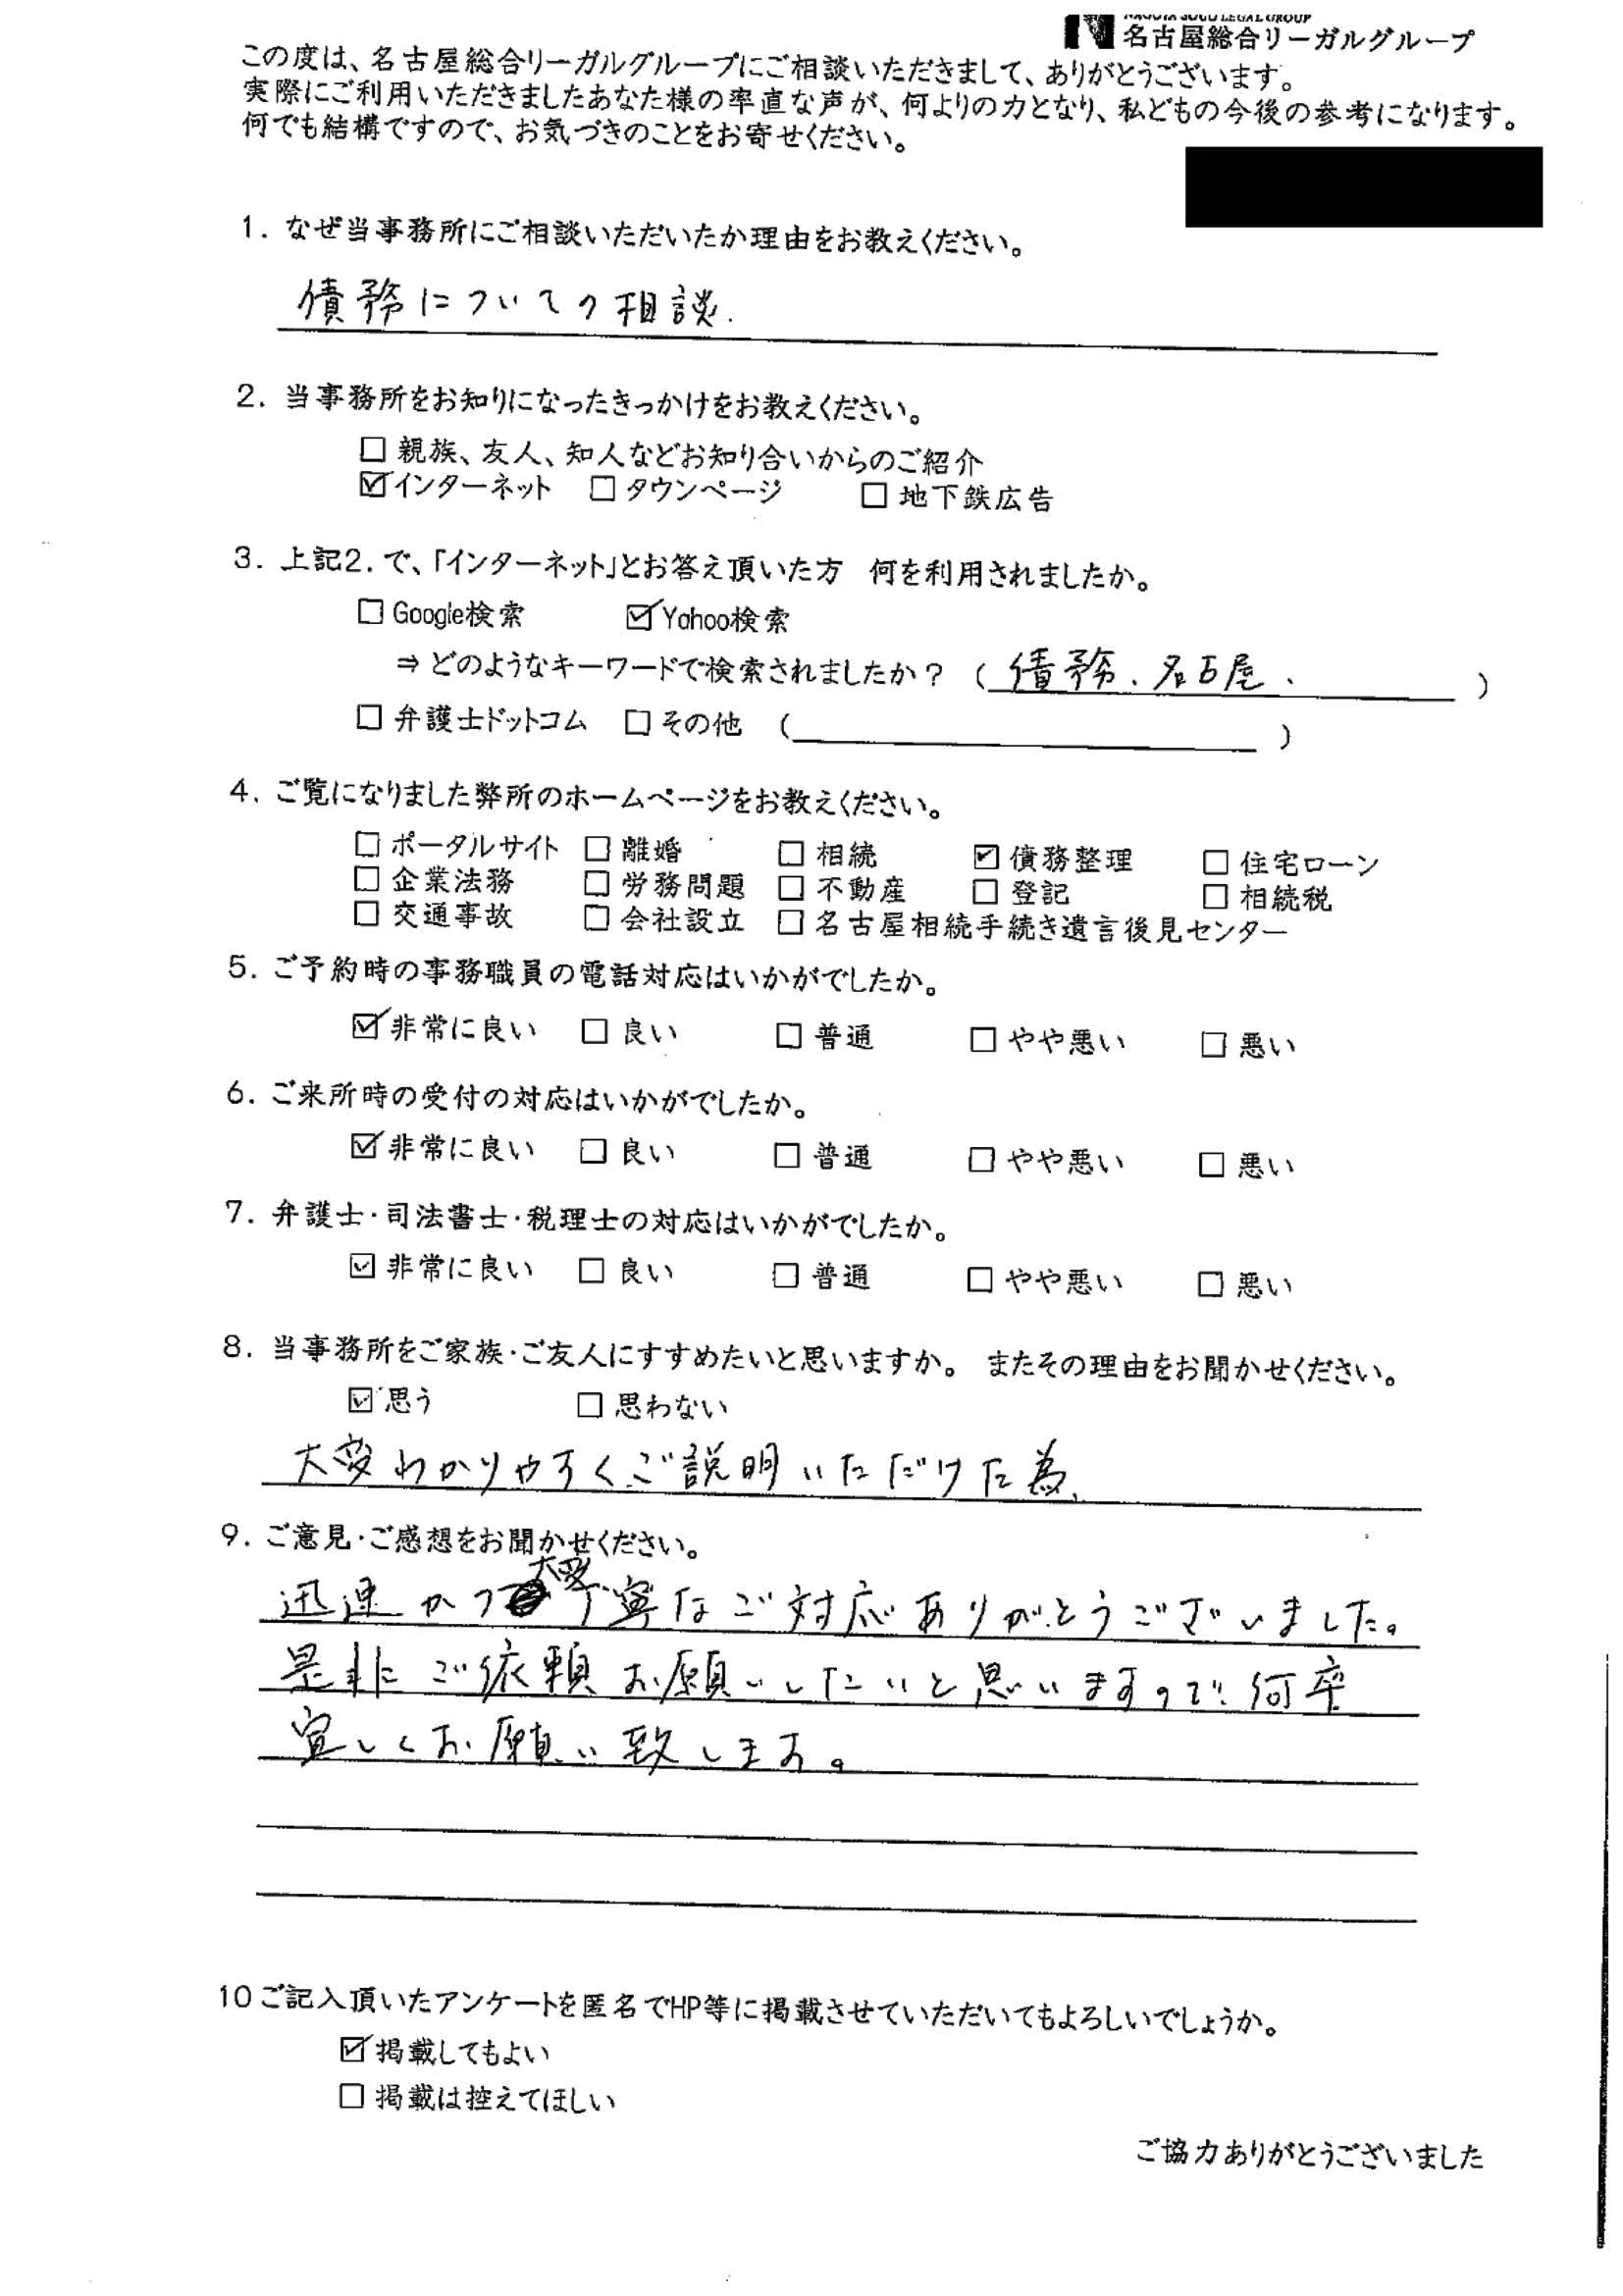 NAGOYA SOGO LEGAL GROUP
名古屋総合リーガルグループ
この度は、名古屋総合リーガルグループにご相談いただきまして、ありがとうございます。
実際にご利用いただきましたあなた様の率直な声が、何よりの力となり、私どもの今後の参考になります。
何でも結構ですので、お気づきのことをお寄せください。
1. なぜ当事務所にご相談いただいたか理由をお教えください。
債務についての相談.
2. 当事務所をお知りになったきっかけをお教えください。
□ 親族、友人、知人などお知り合いからのご紹介
☑インターネット □ タウンページ □ 地下鉄広告
3. 上記2.で、「インターネット」とお答え頂いた方 何を利用されましたか。
□ Google検索 ☑Yahoo検索
⇒ どのようなキーワードで検索されましたか？ (債務、名古屋、)
□ 弁護士ドットコム □ その他 ( )
4. ご覧になりました弊所のホームページをお教えください。
□ ポータルサイト □ 離婚 □ 相続 ☑ 債務整理 □ 住宅ローン
□ 企業法務 □ 労務問題 □ 不動産 □ 登記 □ 相続税
□ 交通事故 □ 会社設立 □ 名古屋相続手続き遺言後見センター
5. ご予約時の事務職員の電話対応はいかがでしたか。
☑非常に良い □ 良い □ 普通 □ やや悪い □ 悪い
6. ご来所時の受付の対応はいかがでしたか。
☑非常に良い □ 良い □ 普通 □ やや悪い □ 悪い
7. 弁護士・司法書士・税理士の対応はいかがでしたか。
☑ 非常に良い □ 良い □ 普通 □ やや悪い □ 悪い
8. 当事務所をご家族・ご友人にすすめたいと思いますか。 またその理由をお聞かせください。
☑ 思う □ 思わない
大変わかりやすくご説明いただけた為、
9. ご意見・ご感想をお聞かせください。
迅速かつ大変丁寧なご対応ありがとうございました。
是非ご依頼お願いしたいと思いますので何卒
宜しくお願い致します。
10 ご記入頂いたアンケートを匿名でHP等に掲載させていただいてもよろしいでしょうか。
☑掲載してもよい
□ 掲載は控えてほしい
ご協力ありがとうございました